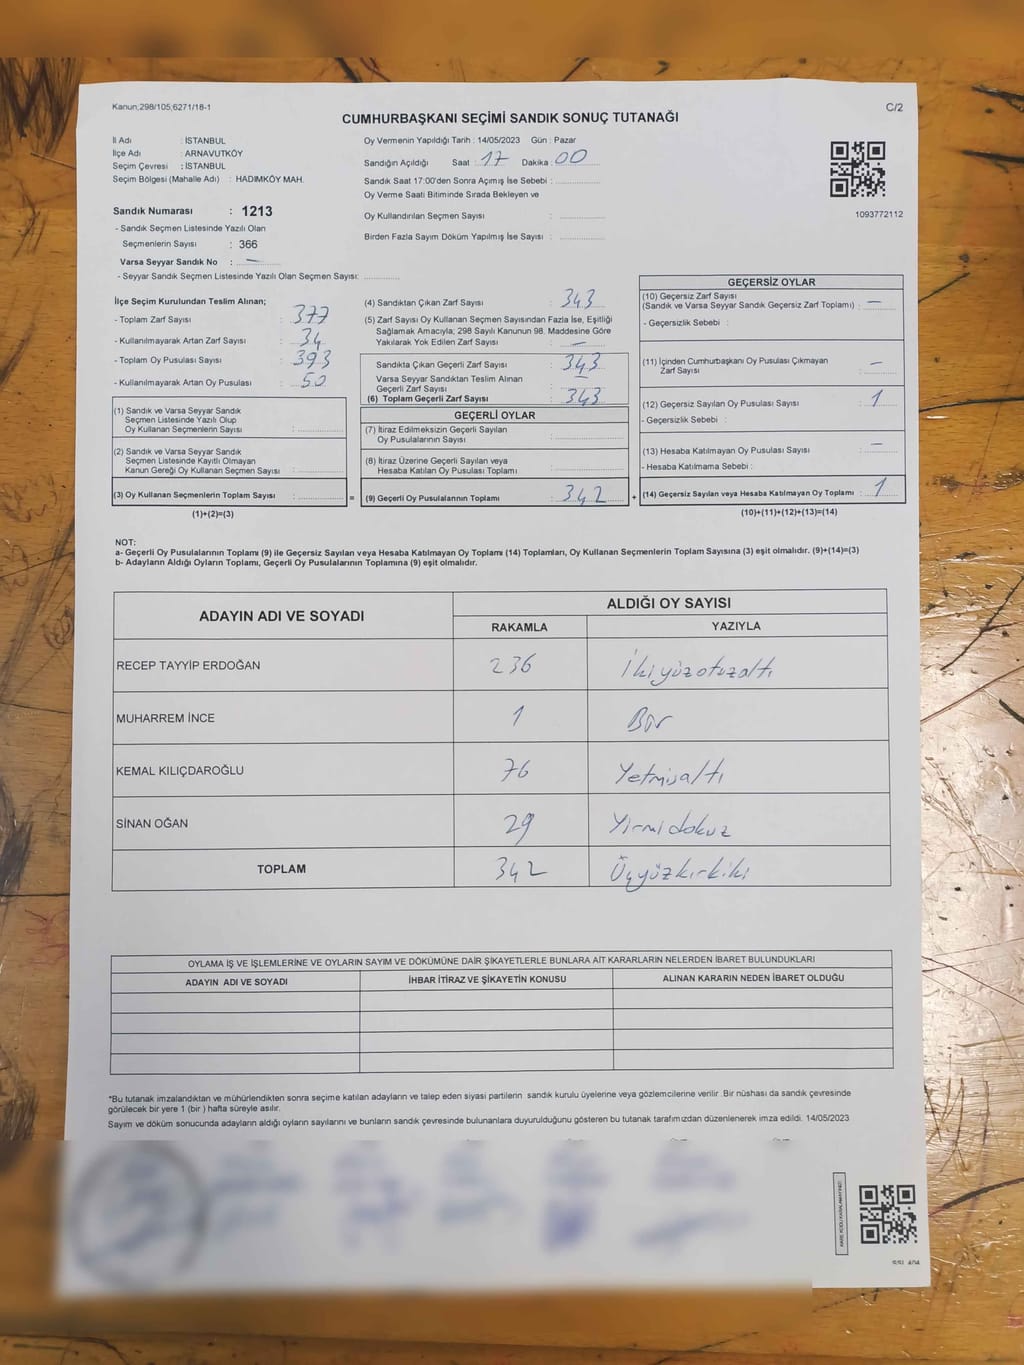 Kanun;298/105;6271/18-1
C/2
CUMHURBAŞKANI SEÇİMİ SANDIK SONUÇ TUTANAĞI
İl Adı : İSTANBUL
İlçe Adı : ARNAVUTKÖY
Seçim Çevresi : İSTANBUL
Seçim Bölgesi (Mahalle Adı) : HADIMKÖY MAH.
Sandık Numarası : 1213
- Sandık Seçmen Listesinde Yazılı Olan
Seçmenlerin Sayısı : 366
Varsa Seyyar Sandık No : —
- Seyyar Sandık Seçmen Listesinde Yazılı Olan Seçmen Sayısı: ............
Oy Vermenin Yapıldığı Tarih : 14/05/2023 Gün : Pazar
Sandığın Açıldığı Saat : 17 Dakika : 00
Sandık Saat 17:00'den Sonra Açımış İse Sebebi : ............
Oy Verme Saati Bitiminde Sırada Bekleyen ve
Oy Kullandırılan Seçmen Sayısı : ............
Birden Fazla Sayım Döküm Yapılmış İse Sayısı : ............
1093772112
İlçe Seçim Kurulundan Teslim Alınan;
- Toplam Zarf Sayısı : 377
- Kullanılmayarak Artan Zarf Sayısı : 34
- Toplam Oy Pusulası Sayısı : 393
- Kullanılmayarak Artan Oy Pusulası : 50
(1) Sandık ve Varsa Seyyar Sandık
Seçmen Listesinde Yazılı Olup
Oy Kullanan Seçmenlerin Sayısı : ............
(2) Sandık ve Varsa Seyyar Sandık
Seçmen Listesinde Kayıtlı Olmayan
Kanun Gereği Oy Kullanan Seçmen Sayısı : ............
(3) Oy Kullanan Seçmenlerin Toplam Sayısı : ............ =
(1)+(2)=(3)
(4) Sandıktan Çıkan Zarf Sayısı : 343
(5) Zarf Sayısı Oy Kullanan Seçmen Sayısından Fazla İse, Eşitliği
Sağlamak Amacıyla; 298 Sayılı Kanunun 98. Maddesine Göre
Yakılarak Yok Edilen Zarf Sayısı : —
Sandıkta Çıkan Geçerli Zarf Sayısı : 343
Varsa Seyyar Sandıktan Teslim Alınan
Geçerli Zarf Sayısı : —
(6) Toplam Geçerli Zarf Sayısı : 343
GEÇERLİ OYLAR
(7) İtiraz Edilmeksizin Geçerli Sayılan
Oy Pusulalarının Sayısı : ............
(8) İtiraz Üzerine Geçerli Sayılan veya
Hesaba Katılan Oy Pusulası Toplamı : ............
(9) Geçerli Oy Pusulalarının Toplamı : 342 +
GEÇERSİZ OYLAR
(10) Geçersiz Zarf Sayısı
(Sandık ve Varsa Seyyar Sandık Geçersiz Zarf Toplamı) : —
- Geçersizlik Sebebi :
(11) İçinden Cumhurbaşkanı Oy Pusulası Çıkmayan
Zarf Sayısı : —
(12) Geçersiz Sayılan Oy Pusulası Sayısı : 1
- Geçersizlik Sebebi :
(13) Hesaba Katılmayan Oy Pusulası Sayısı : —
- Hesaba Katılmama Sebebi :
(14) Geçersiz Sayılan veya Hesaba Katılmayan Oy Toplamı : 1
(10)+(11)+(12)+(13)=(14)
NOT:
a- Geçerli Oy Pusulalarının Toplamı (9) ile Geçersiz Sayılan veya Hesaba Katılmayan Oy Toplamı (14) Toplamları, Oy Kullanan Seçmenlerin Toplam Sayısına (3) eşit olmalıdır. (9)+(14)=(3)
b- Adayların Aldığı Oyların Toplamı, Geçerli Oy Pusulalarının Toplamına (9) eşit olmalıdır.
ADAYIN ADI VE SOYADI ALDIĞI OY SAYISI
RAKAMLA YAZIYLA
RECEP TAYYİP ERDOĞAN 236 İkiyüzotuzaltı
MUHARREM İNCE 1 Bir
KEMAL KILIÇDAROĞLU 76 Yetmişaltı
SİNAN OĞAN 29 Yirmidokuz
TOPLAM 342 Üçyüzkırkiki
OYLAMA İŞ VE İŞLEMLERİNE VE OYLARIN SAYIM VE DÖKÜMÜNE DAİR ŞİKAYETLERLE BUNLARA AİT KARARLARIN NELERDEN İBARET BULUNDUKLARI
ADAYIN ADI VE SOYADI İHBAR İTİRAZ VE ŞİKAYETİN KONUSU ALINAN KARARIN NEDEN İBARET OLDUĞU
*Bu tutanak imzalandıktan ve mühürlendikten sonra seçime katılan adayların ve talep eden siyasi partilerin sandık kurulu üyelerine veya gözlemcilerine verilir .Bir nüshası da sandık çevresinde
görülecek bir yere 1 (bir ) hafta süreyle asılır.
Sayım ve döküm sonucunda adayların aldığı oyların sayılarını ve bunların sandık çevresinde bulunanlara duyurulduğunu gösteren bu tutanak tarafımızdan düzenlenerek imza edildi. 14/05/2023